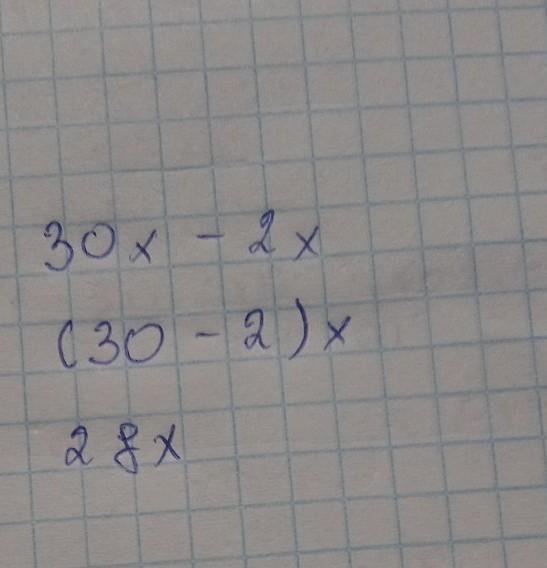 30x - 2x
(30 - 2)x
28x